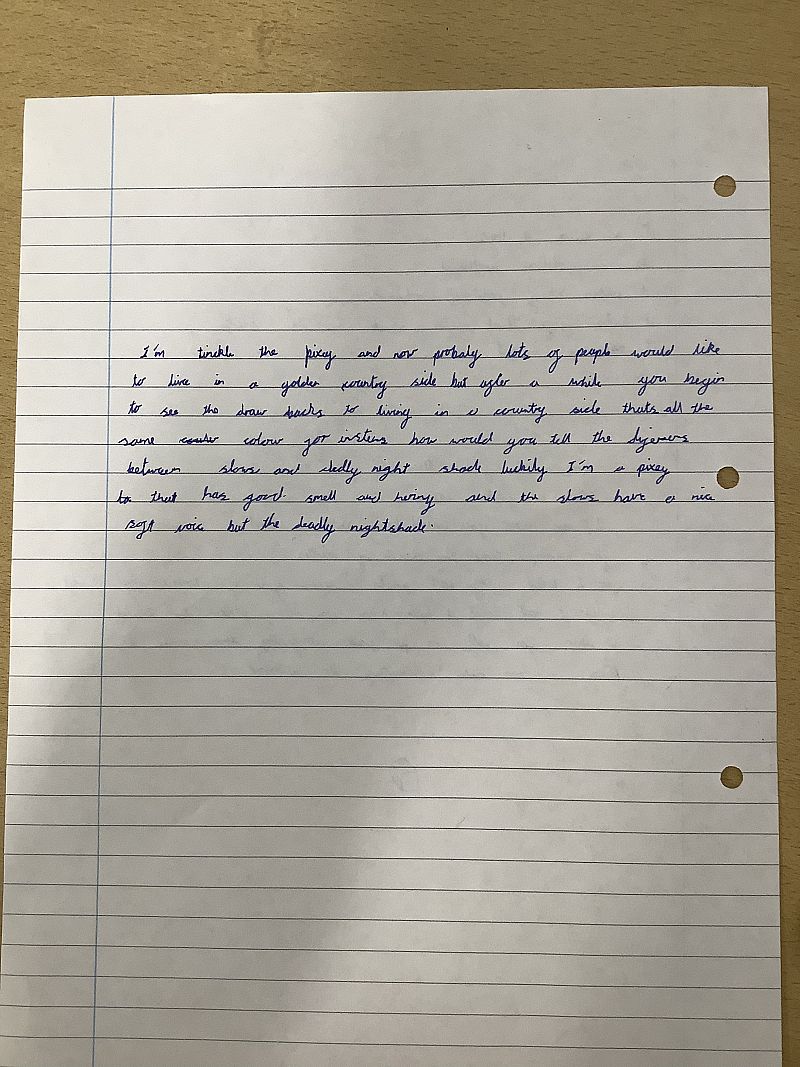 I'm tinckle the pixey and now probaly lots of people would like
to live in a golden country side but after a while you begin
to see the draw backs to living in a country side thats all the
same colour for instens how would you tell the diferens
between slows and dedly night shade luckily I'm a pixey
that has good smell and hering and the slows have a nice
soft voic but the deadly nightshade.